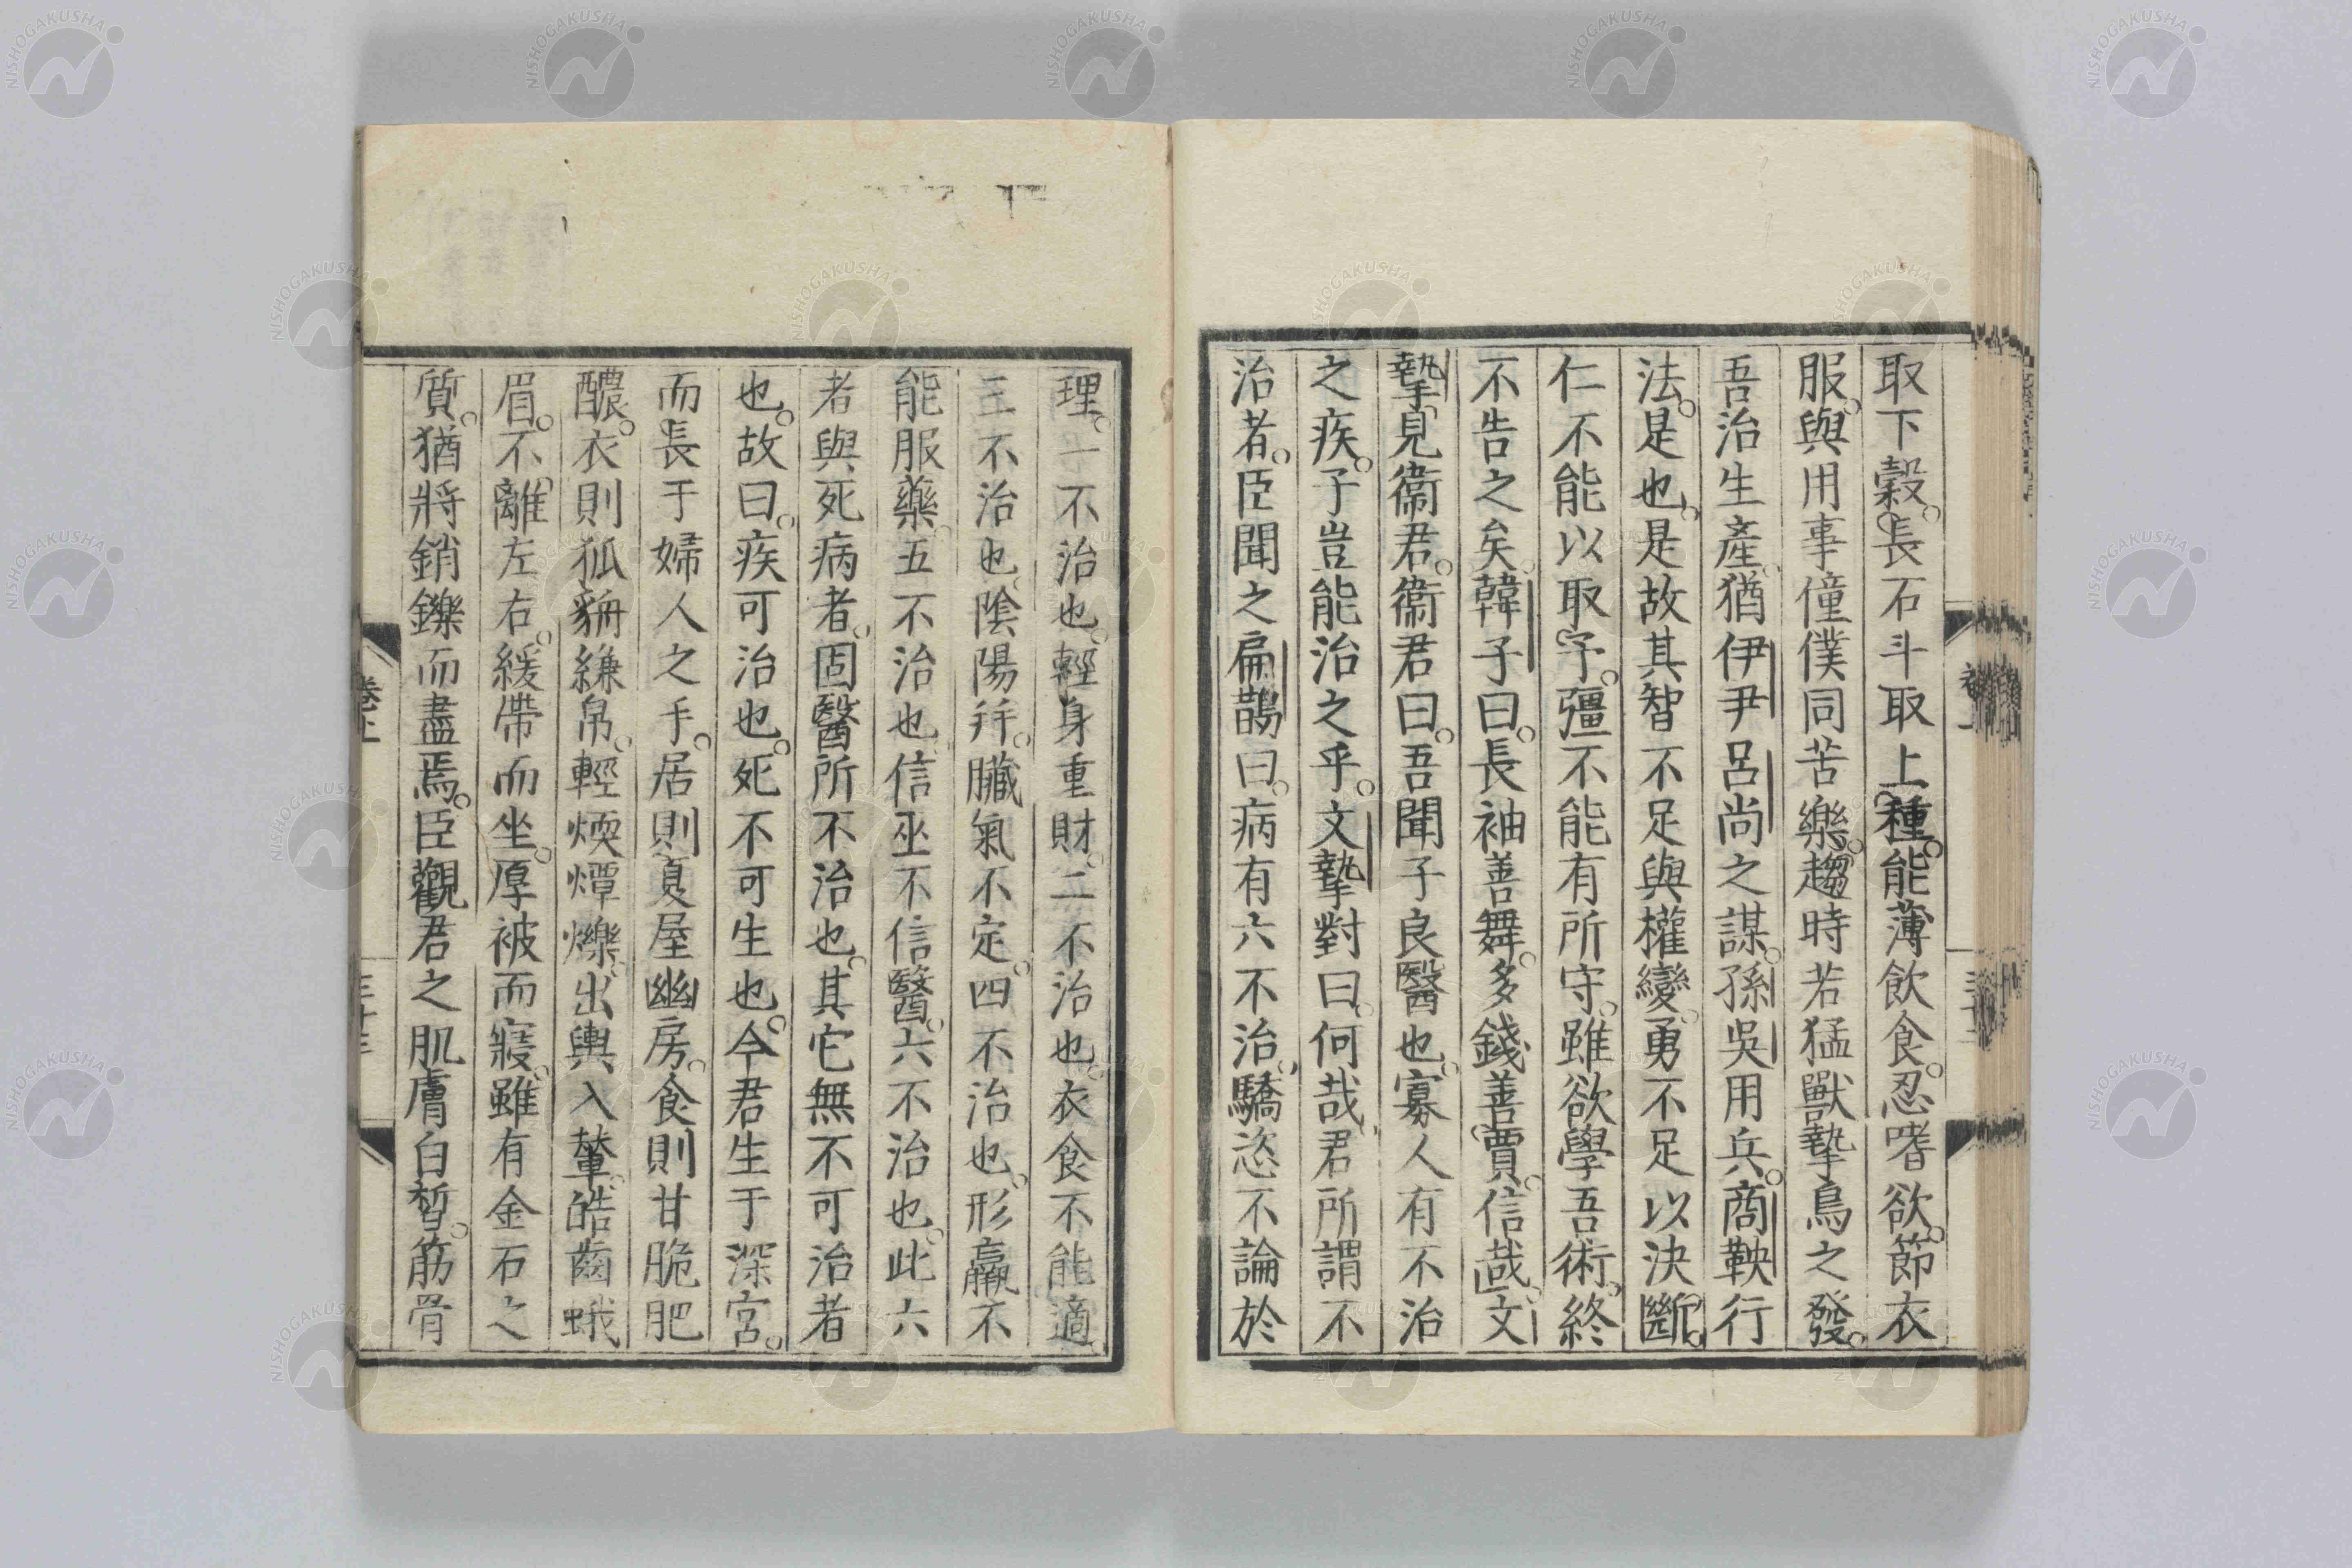 取下穀。長石斗取上種。能薄飲食。忍嗜欲。節衣
服。與用事僮僕同苦樂。趨時若猛獸摯鳥之發。
吾治生產。猶伊尹呂尚之謀。孫吳用兵。商鞅行
法。是也。是故其智不足與權變。勇不足以決斷。
仁不能以取予。彊不能有所守。雖欲學吾術。終
不告之矣。韓子曰。長袖善舞。多錢善賈。信哉。文
摯見衞君。衞君曰。吾聞子良醫也。寡人有不治
之疾。子豈能治之乎。文摯對曰。何哉。君所謂不
治者。臣聞之扁鵲曰。病有六不治。驕恣不論於
理。一不治也。輕身重財。二不治也。衣食不能適。
三不治也。陰陽并。臟氣不定。四不治也。形羸不
能服藥。五不治也。信巫不信醫。六不治也。此六
者與死病者。固醫所不治也。其它無不可治者
也。故曰。疾可治也。死不可生也。今君生于深宮。
而長于婦人之手。居則夏屋幽房。食則甘脆肥
醲。衣則狐貈縑帛。輕煗燂爍。出輿入輦。皓齒蛾
眉。不離左右。緩帶而坐。厚被而寢。雖有金石之
質。猶將銷鑠而盡焉。臣觀君之肌膚白皙。筋骨
卷上
NISHOGAKUSHA